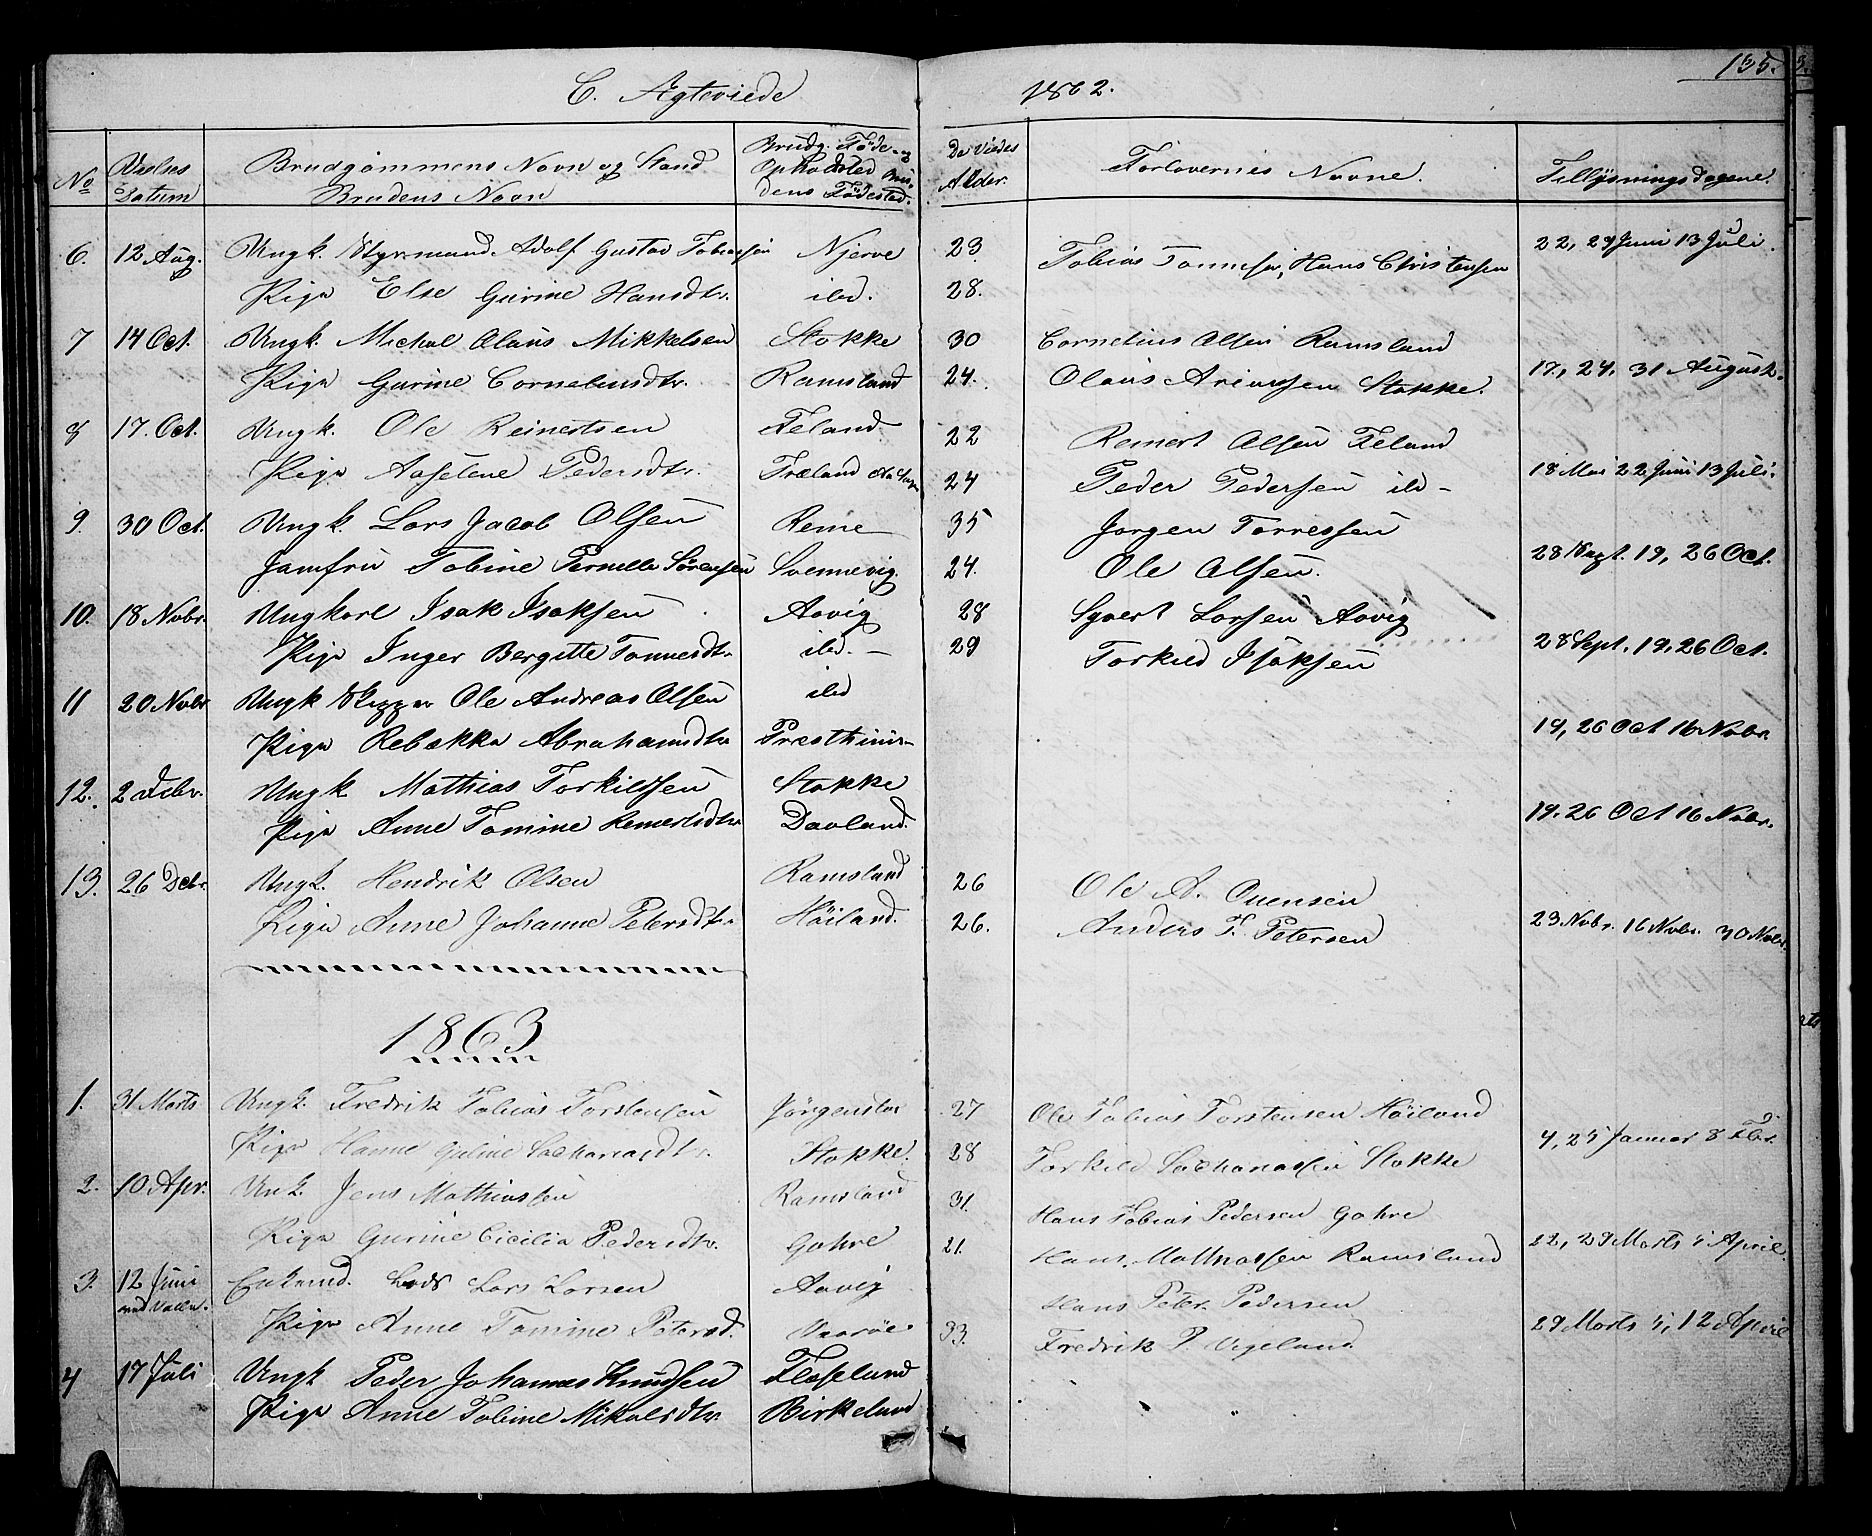 C. Agteviede 1862. 155.
No Vielses Datum Brudgommens Navn og Stand Brudens Navn Brudg. Føde- og Opholdsted Brudens Fødested. De Viedes Alder. Forlovernes Navne. Tillysningsdagene.
6. 12 Aug. Ungk. Styrmand. Adolf Gustav Tobiassen Njerve 23. Tobias Tønnesen, Hans Christensen 22, 29 Juni 13 Juli.
Pige Else Gurine Hansdtr. ibd. 28.
7 14 Oct. Ungk. Michal Olaus Mikkelsen Stokke 30 Cornelius Olsen Ramsland
Pige Gurine Corneliusdtr. Ramsland 24. Olaus Stokke. 17, 24, 31 August.
8 17. Oct. Ungk. Ole Reinertsen Feland 22 Reinert Olsen Feland
Pige Aaselene Pedersdtr. Træland 24 Peder Pedersen ibd- 18 Mai 22 Juni 13 Juli.
9. 30 Oct. Ungk. Lars Jacob Olsen Reme 35 Jørgen Torressen
Jomfru Tobine Pernelle Sørensen Svennevig. 24. Ole Olsen. 28 Sept. 19, 26 Oct.
10. 18 Novbr. Ungkarl Isak Isaksen Aavig 28 Syvert Larsen Aavig
Pige Inger Bergitte Tønnesdtr ibd.- 29 Torkild Isaksen 28 Sept. 19, 26 Oct.
11 20 Novbr Ungk Skipper Ole Andreas Olsen ibd
Pige Rebekka Abrahamsdtr Præsthuus- 19, 26 Oct 16 Novbr.
12. 2 Debr. Ungk Mathias Torkildsen Stokke
Pige Anne Tomine Reinertsdtr Davland. 19. 26 Oct 16 Novbr.
13. 26 Debr. Ungk. Hendrik Olsen Ramsland 26 Ole A. Ouensen
Pige Anne Johanne Petersdtr. Høiland. 26. Anders T. Petersen 23 Novbr. 16 Novbr. 30 Novbr.
1863
1. 31 Marts Ungk. Fredrik Tobias Torstensen Jørgenstad 27 Ole Tobias Torstensen Høiland
Pige Hanne Guline Sachariasdtr. Stokke. 28 Torkild Sachariassen Stokke 4, 25 Januar 8 Fbr.
2. 10 Apr. Unk. Jens Mathiassen Ramsland 31. Hans Tobias Pedersen Gahre
Pige Gurine Cicilia Pedersdtr. Gahre 21. Hans Mathiassen Ramsland 22, 29 Marts 5 April
3. 12 Juni Enkemd. Lods Lars Larsen Aavig Hans Peter Pedersen
Pige Anne Tomine Petersd. Udøe 33. Fredrik P. Vigeland 29 Marts 5, 12 April
4 17 Juli Ungk Peder Johannes Knudsen Floseland
Pige Anne Tobine Mikalsdtr Birkeland